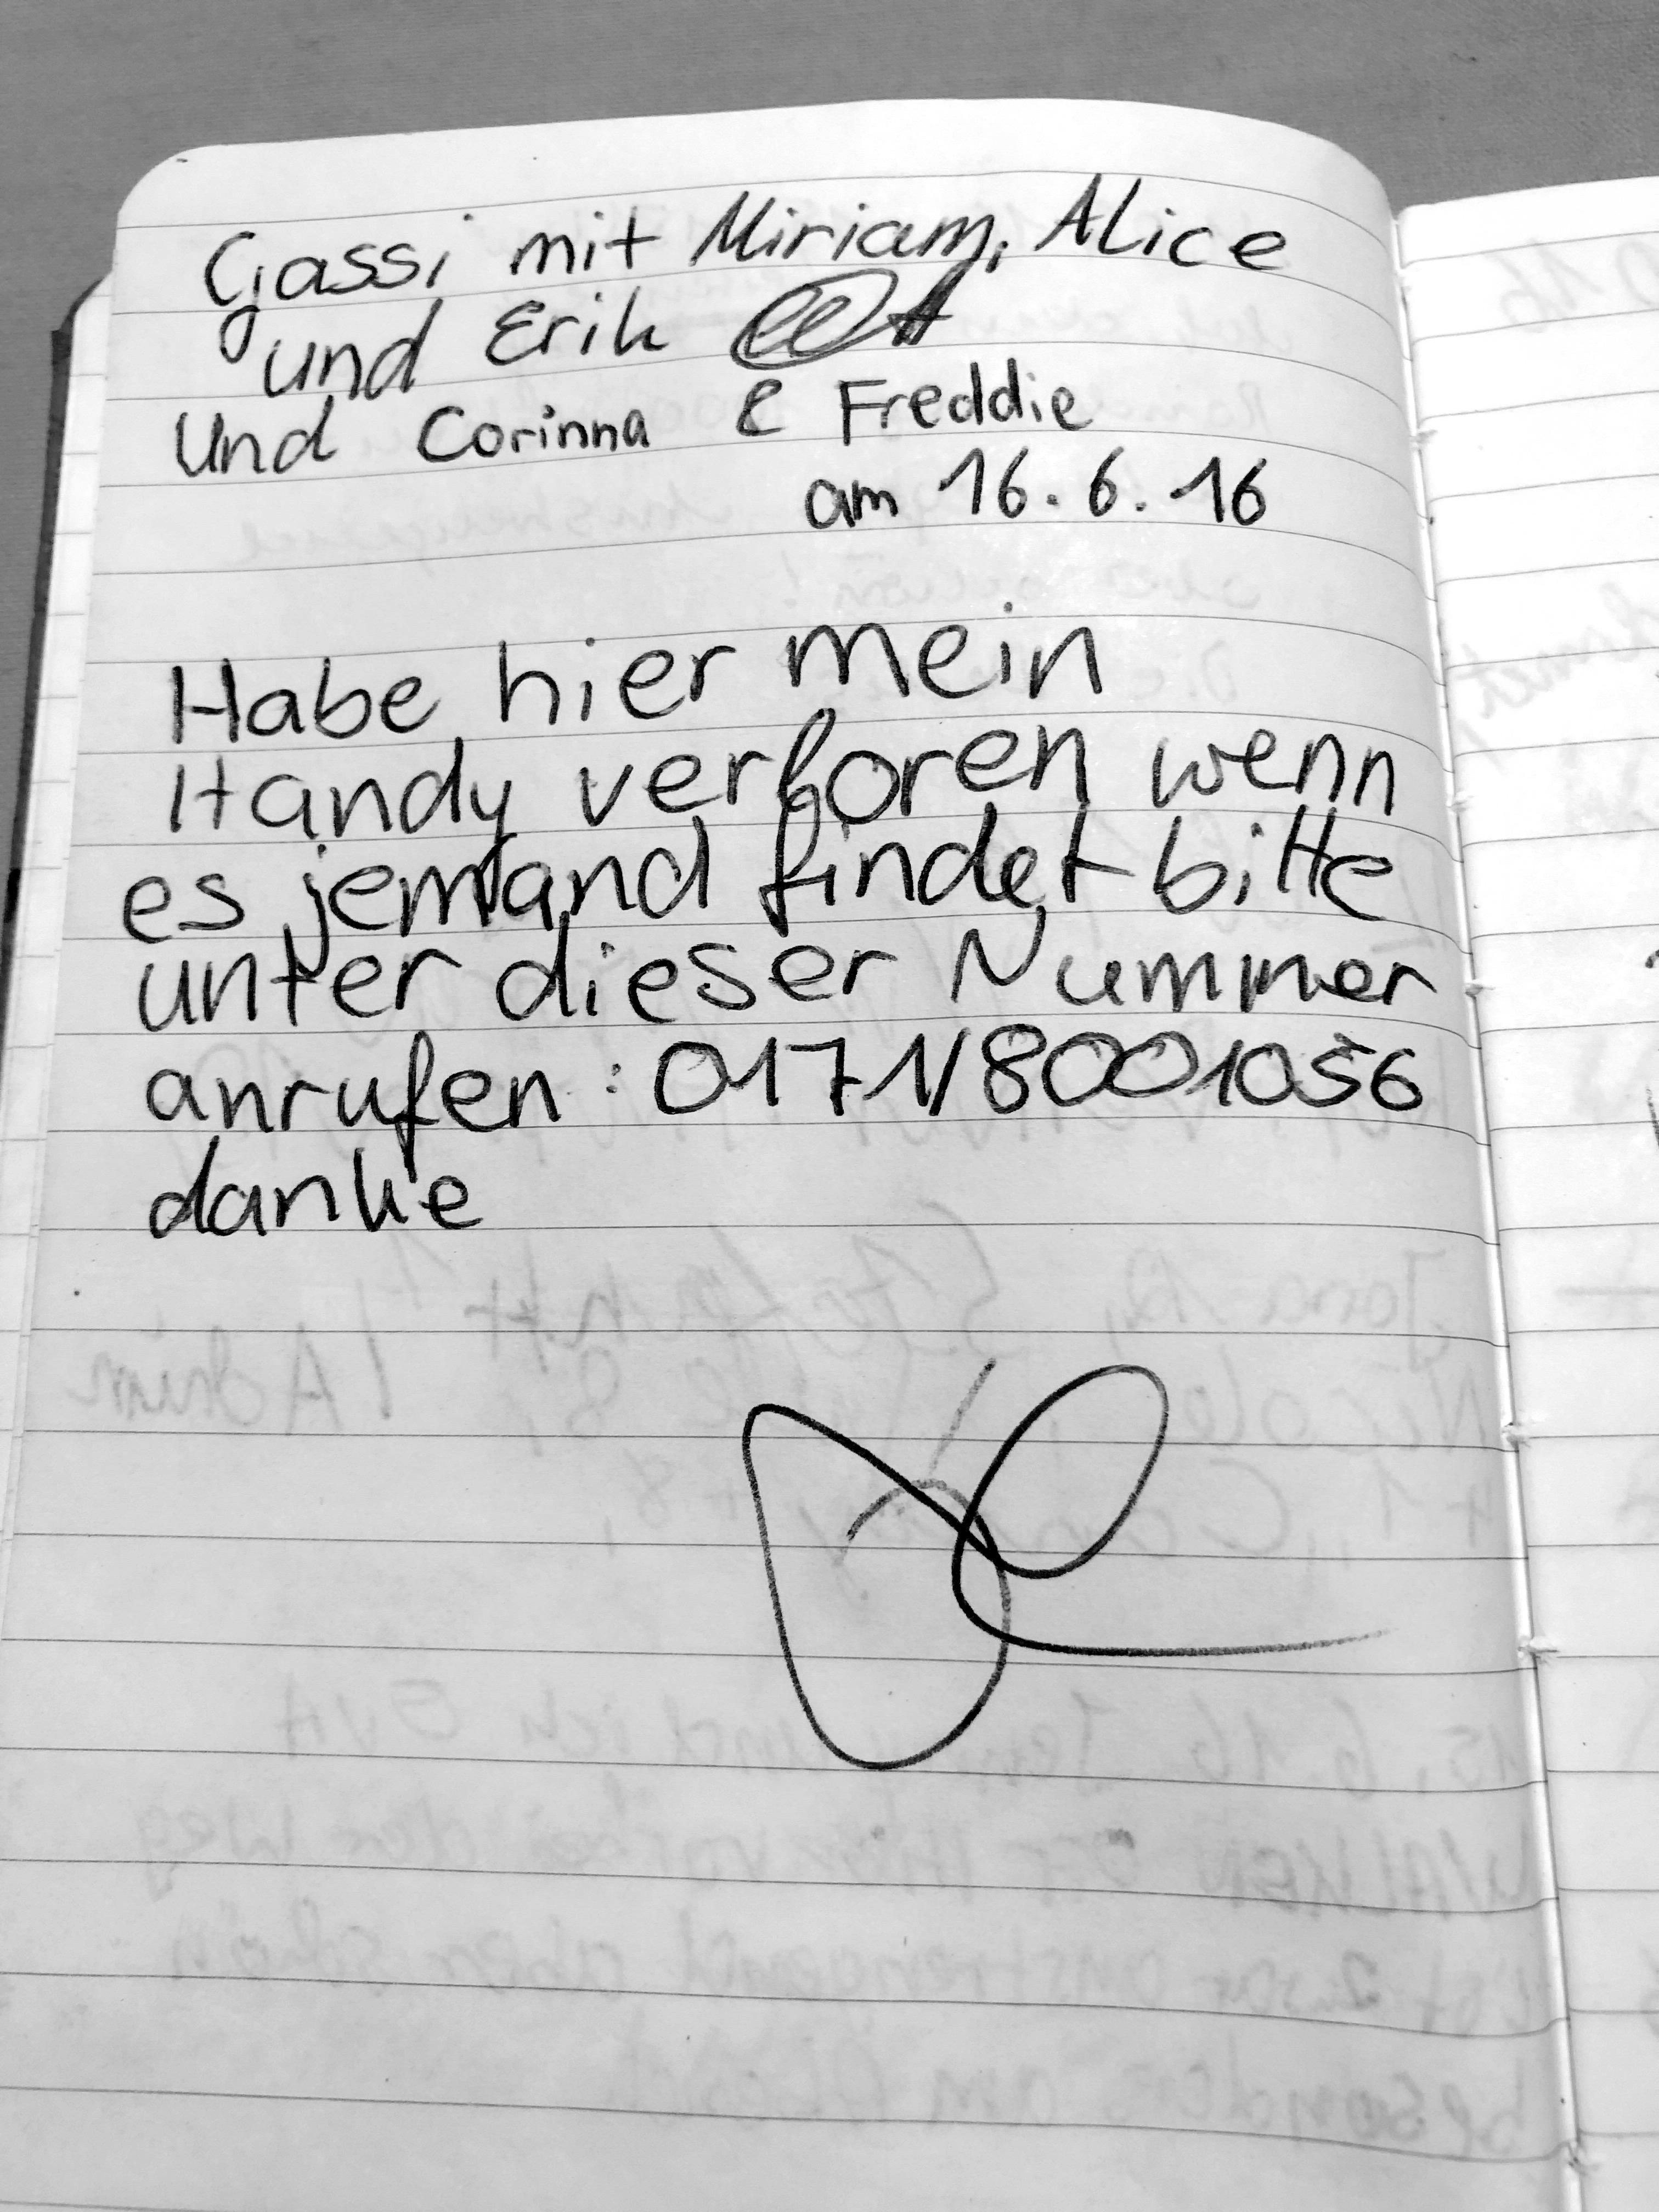 Gassi mit Miriam, Alice
und Erik
und Corinna & Freddie
am 16.6.16
Habe hier mein
Handy verloren wenn
es jemand findet bitte
unter dieser Nummer
anrufen: 0171/8001056
danke